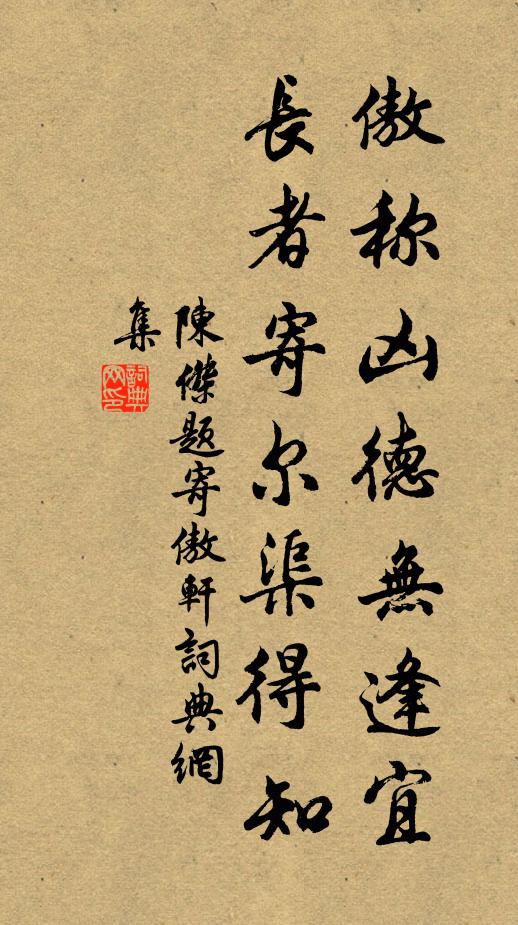 傲称凶德無逢宜
長者寄尔渠得知
陳傑題寄傲軒詞典網
集
詞典网印